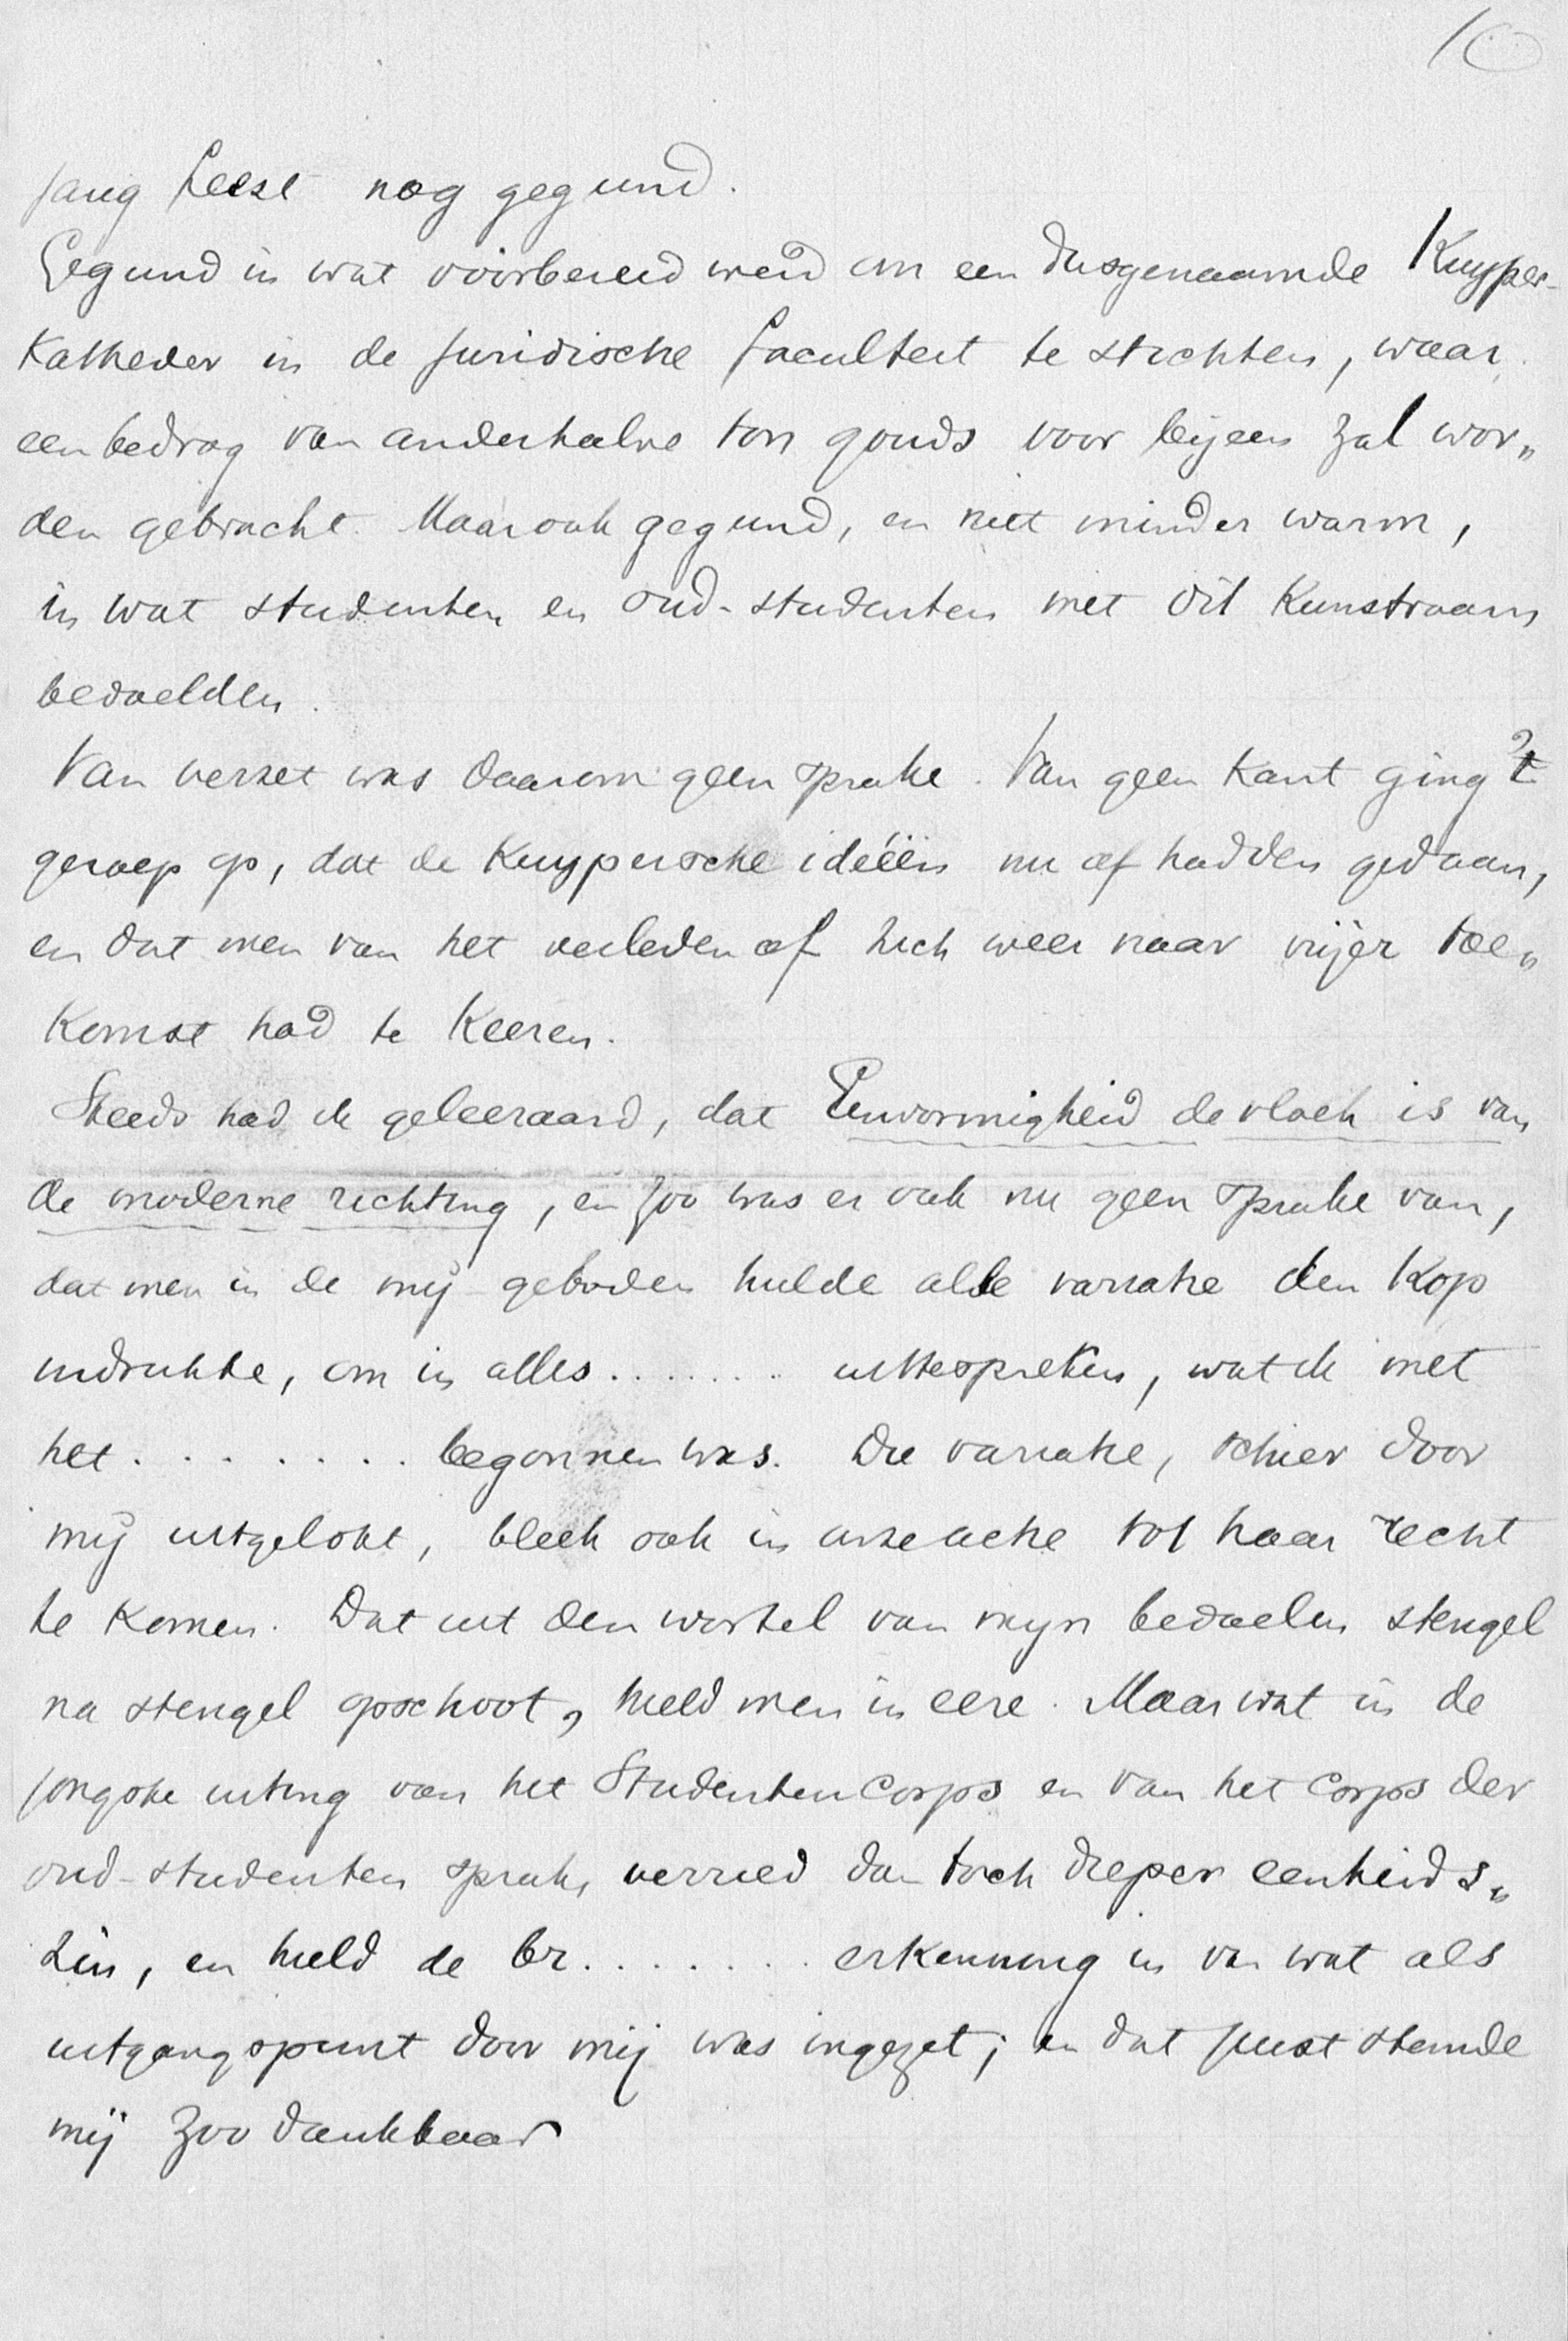 10
jarig feest nog gegund.
Gegund in wat voorbereid werd om een dusgenaamde Kuyper-
Katheder in de Juridische faculteit te stichten, waar
een bedrag van anderhalve ton gouds voor bijeen zal wor„
den gebracht. Maar ook gegund, en niet minder warm,
in wat studenten en oud-studenten met dit Kunstraam
bedoelden.
Van verzet was daarom geen sprake. Van geen kant ging 't
geroep op, dat de Kuypersche ideéën nu af hadden gedaan,
en dat men van het verleden af zich weer naar vrijer toe„
Komst had te Keeren.
Steeds had ik geleeraard, dat Eenvormigheid de vloek is van
de moderne richting, en zoo was er ook nu geen sprake van,
dat men in de mij geboden hulde alle variatie den Kop
indrukte, om in alles . . . . . . . uittespreken, wat ik met
het . . . . . . . . begonnen was. Die variatie, schier door
mij uitgelokt, bleek ook in casu actie tot haar recht
te Komen. Dat uit den wortel van mijn bedoelen stengel
na stengel opschoot, hield men in eere. Maar wat in de
jongste uiting van het Studentencorps en van het corps der
oud-studenten sprak, verried dan toch dieper eenheids„
zin, en hield de br. . . . . . . . erkenning in van wat als
uitgangspunt door mij was ingezet; en dat juist stemde
mij zoo dankbaar